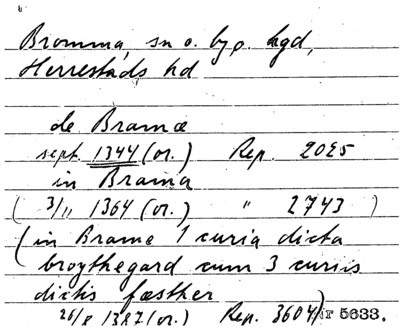 Bromma, sn o. by o. hgd,
Herrestads hd
de Bramæ
sept. 1344 (or.) Rep. 2025
in Brama
( 3/11 1364 (or.) " 2743 )
( in Brame 1 curia dicta
broythegard cum 3 curiis
dictis fæsther )
25/8 1387 (or.) Rep. 3604) nr 5633.